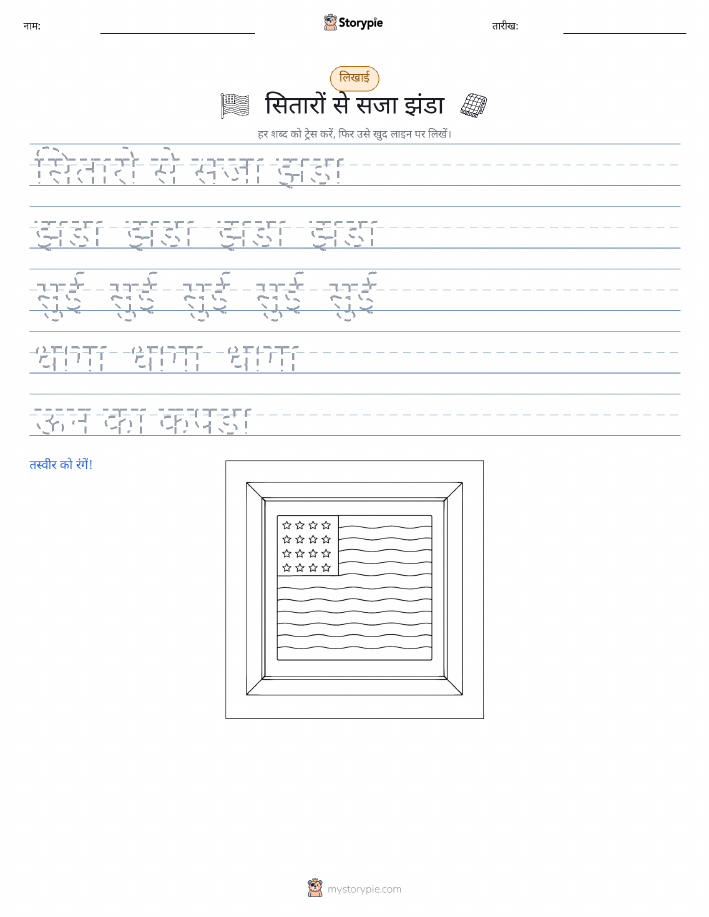 नाम:
Storypie
तारीख:
लिखाई
सितारों से सजा झंडा
हर शब्द को ट्रेस करें, फिर उसे खुद लाइन पर लिखें।
सितारो से सजा झडा
झडा झडा झडा झडा
सुई सुई सुई सुई सुई
धागा धागा धागा
ऊन का कपडा
तस्वीर को रंगें!
mystorypie.com